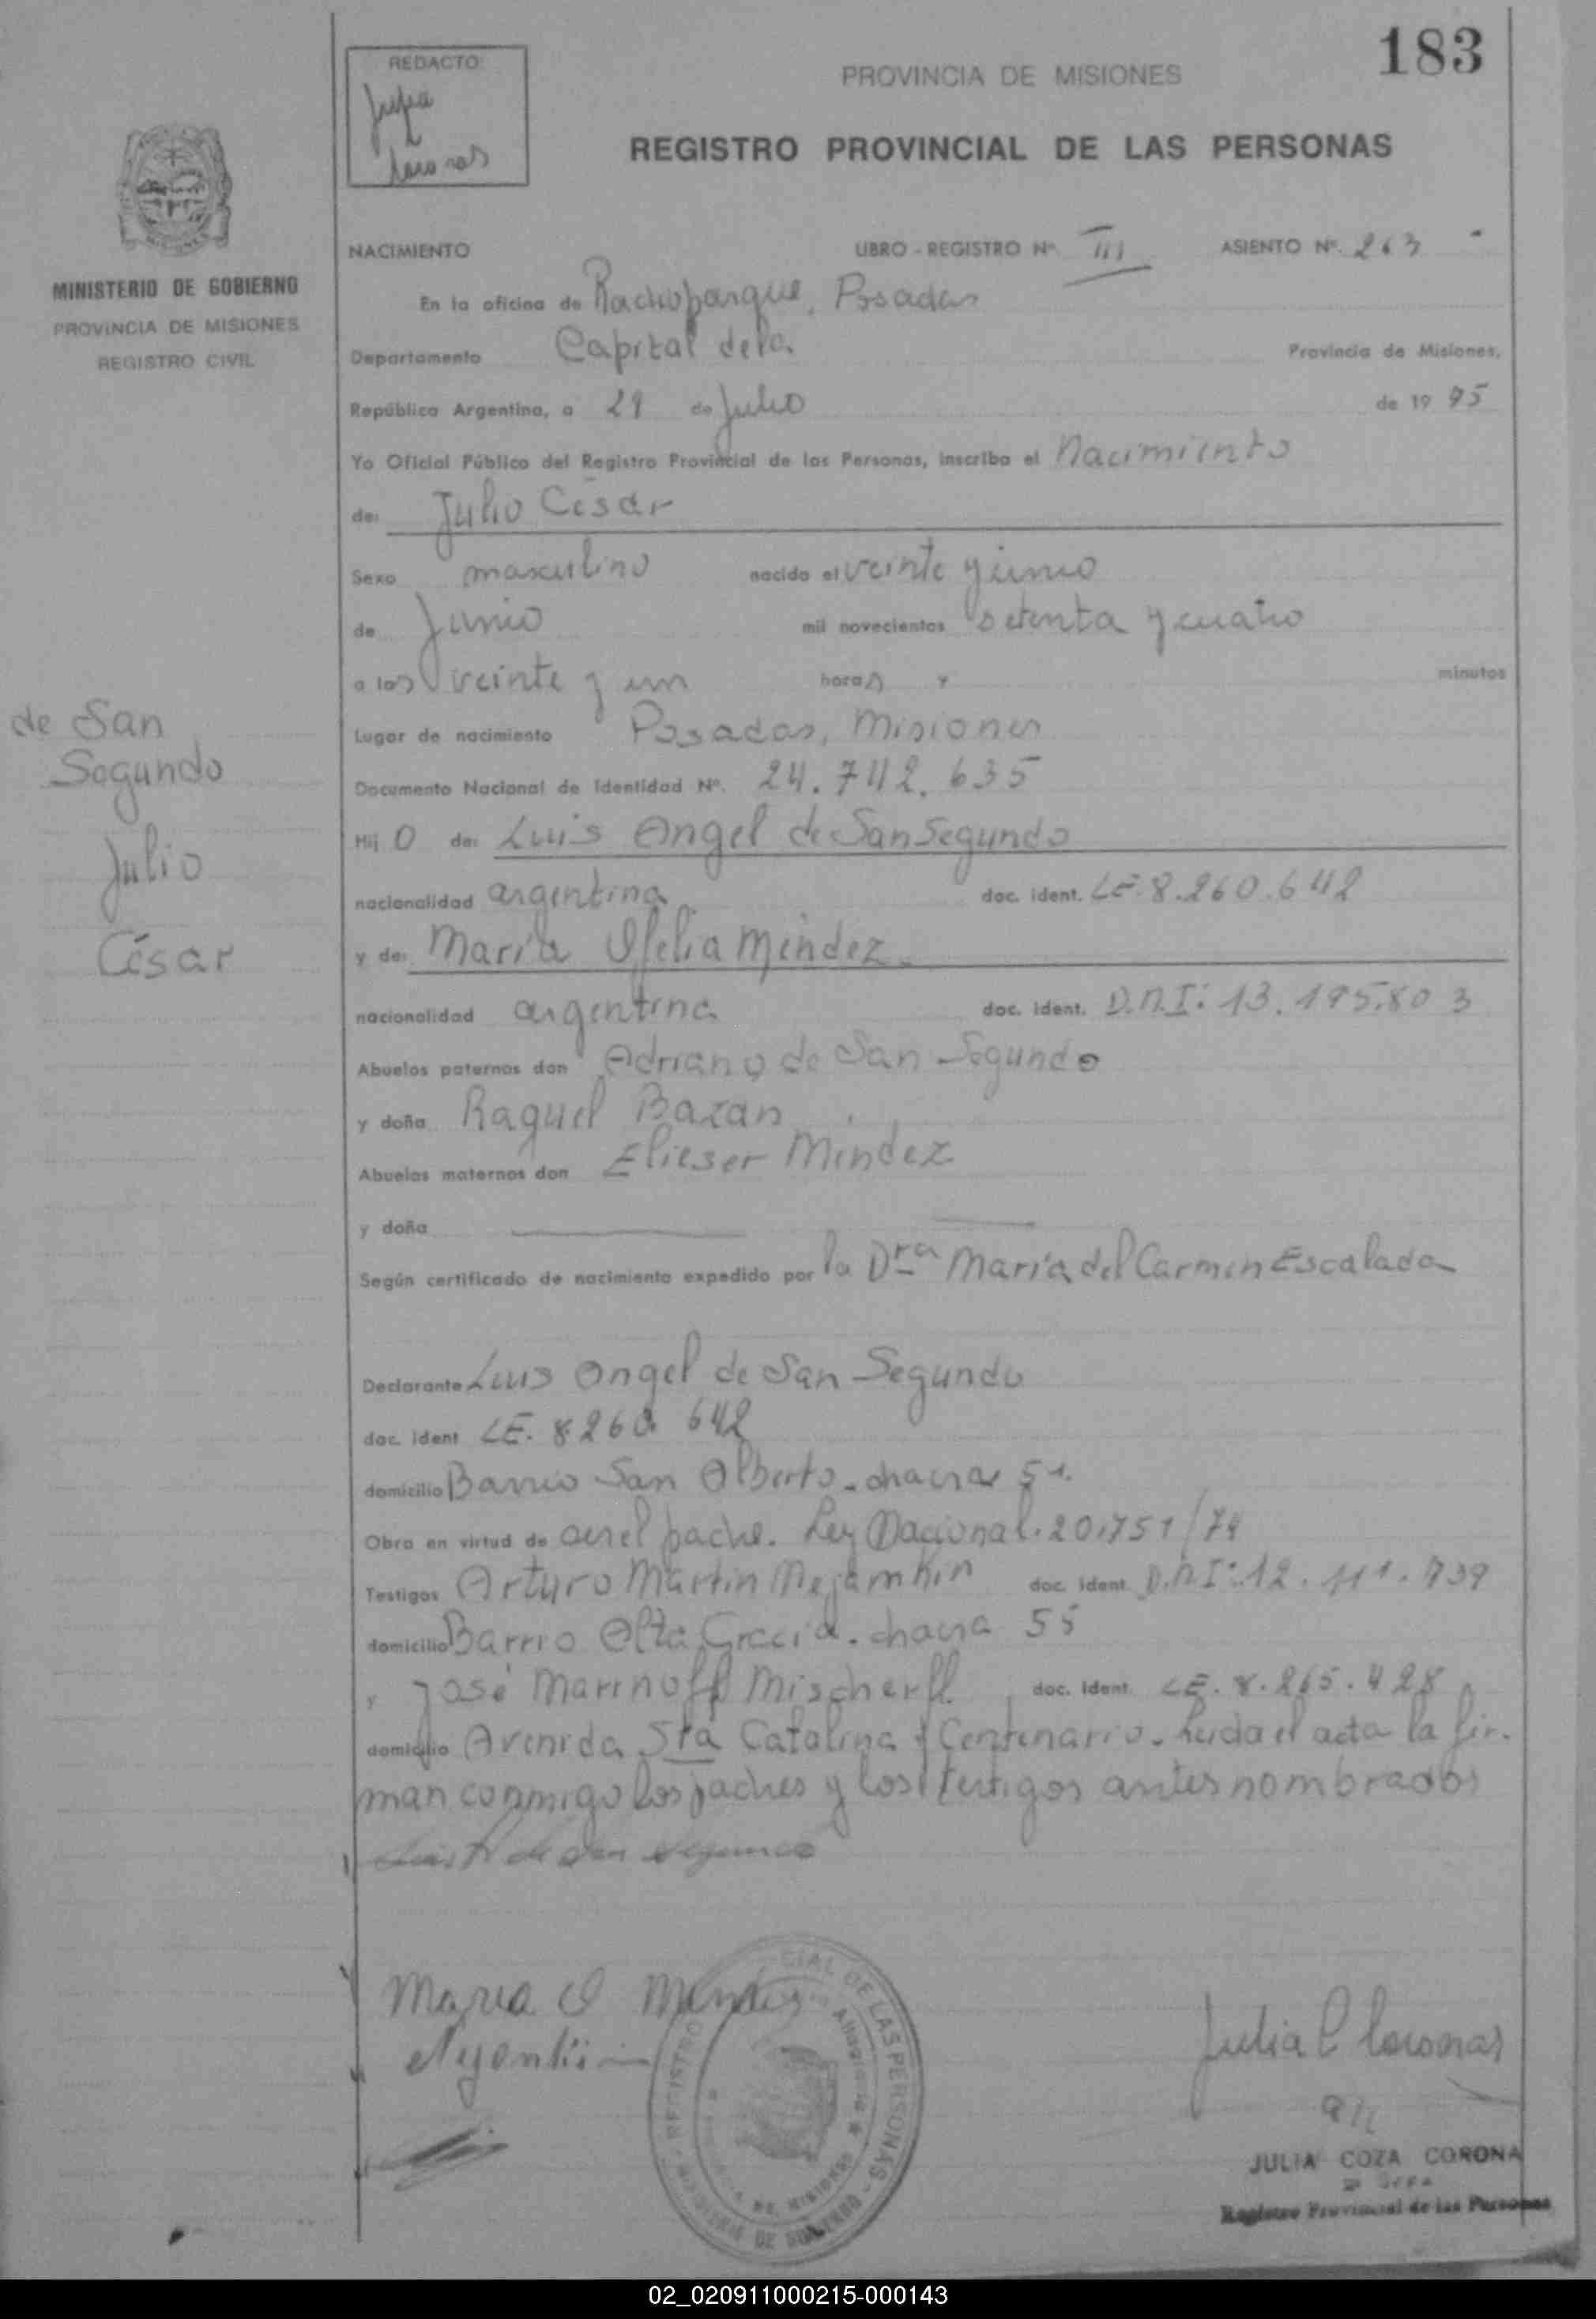 183
REDACTO
PROVINCIA DE MISIONES
REGISTRO PROVINCIAL DE LAS PERSONAS
MINISTERIO DE GOBIERNO
PROVINCIA DE MISIONES
REGISTRO CIVIL
NACIMIENTO LIBRO - REGISTRO Nº. III ASIENTO Nº. 263
En la oficina de Posadas
Departamento Capital de la Provincia de Misiones,
República Argentina, a de Julio de 19
Yo Oficial Público del Registro Provincial de las Personas, inscribo el Nacimiento
de: Julio César
Sexo masculino nacido el veinte y uno
de Junio mil novecientos setenta y cuatro
a las veinte y un horas y minutos
Lugar de nacimiento Posadas, Misiones
Documento Nacional de Identidad Nº. 24.742.635
Hij o de: Luis Angel de San Segundo
nacionalidad argentina doc. ident. LE. 8.260.642
y de: María Ofelia Méndez
nacionalidad argentina doc. ident. D.N.I: 13.195.803
Abuelos paternos don Adriano de San Segundo
y doña Raquel Bazan
Abuelos maternos don Elieser Méndez
y doña
Según certificado de nacimiento expedido por la Dra María del Carmen Escalada
de San
Segundo
Julio
César
Declarante Luis Angel de San Segundo
doc. ident LE. 8.260.642
domicilio Barrio San Alberto - chacra 51.
Obra en virtud de ser el padre. Ley Nacional. 20.751/74
Testigos Arturo Martin doc. ident. D.N.I: 12.111.739
domicilio Barrio Alta Gracia. chacra 55
y José Marinoff doc. ident. LE. 8.265.428
domicilio Avenida Sta Catalina y Centenario. Leida el acta la fir-
man conmigo los padres y los testigos antes nombrados
Maria O Mendez
Julia C Coronas
JULIA COZA CORONA
Registro Provincial de las Personas
02_020911000215-000143